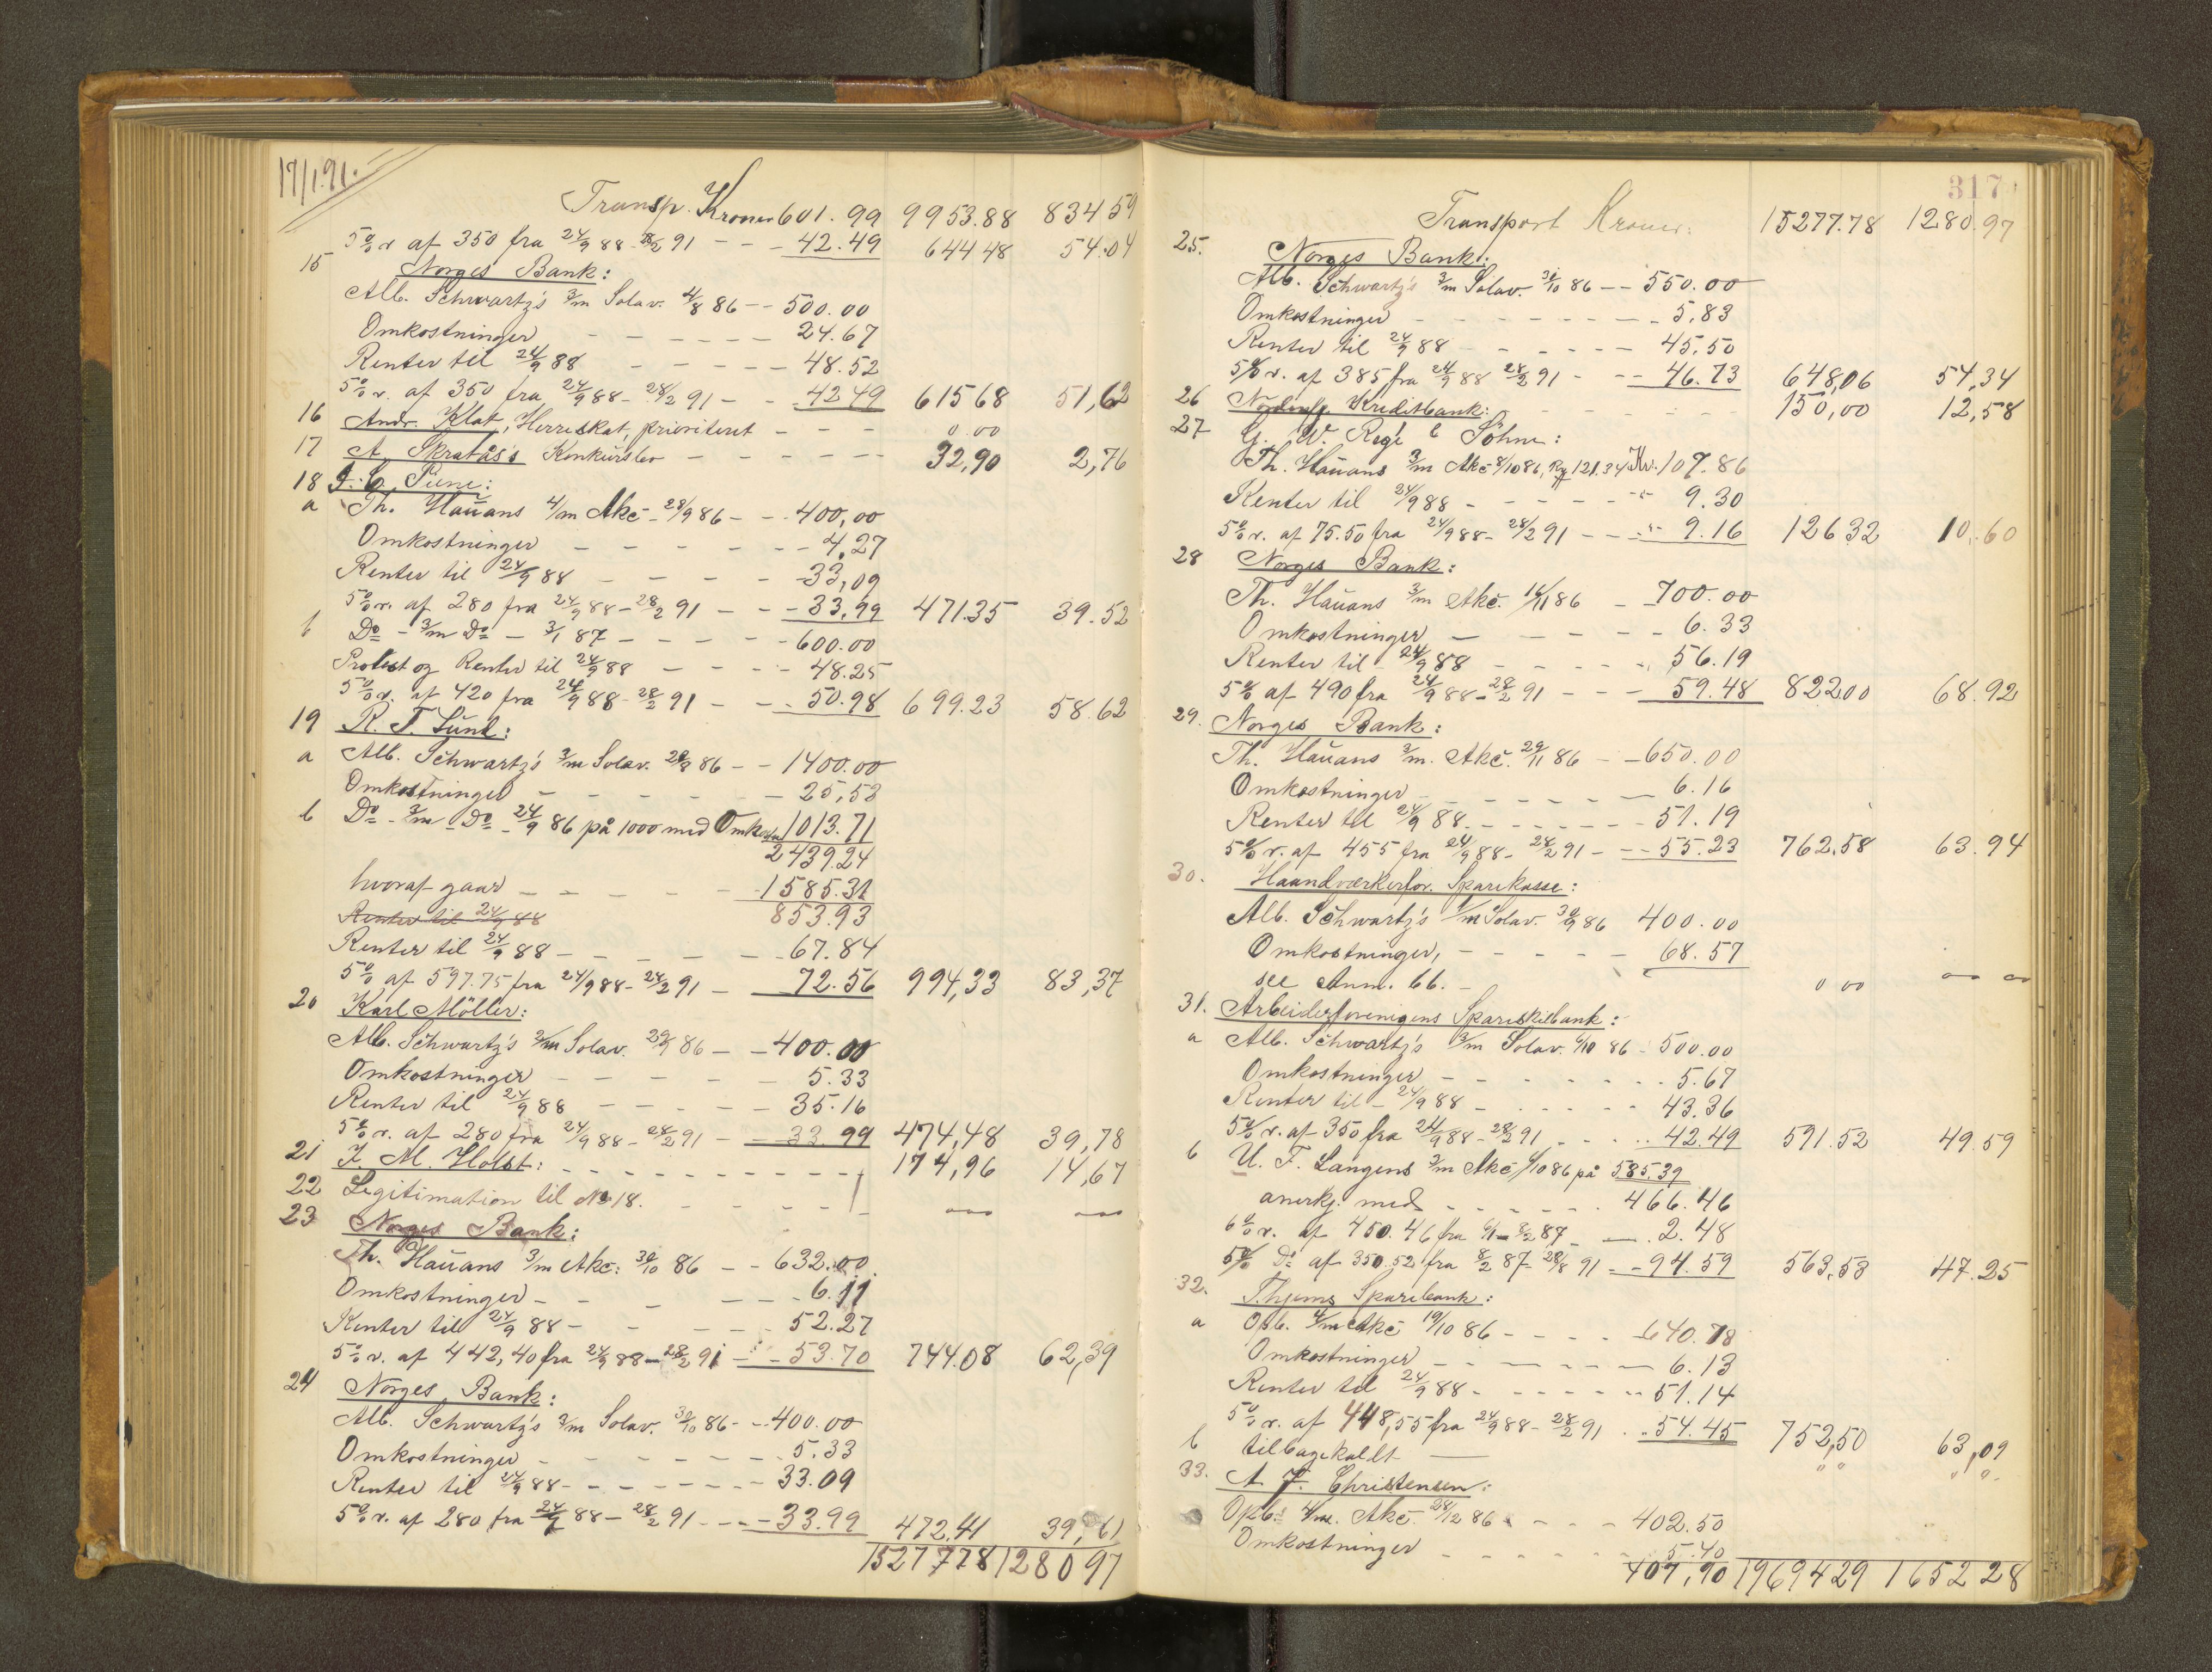 17/1.91.
Transp. Kroner 601.99 9953.88 834 59
5% r af 350 fra 24/9 88 - 28/2 91 - - - 42.49 644 48 54.04
15 Norges Bank:
Alb. Schwartz's 3/m Solav. 4/8 86 - - 500.00
Omkostninger - - - - - 24.67
Renter til 24/9 88 - - - - 48.52
5% r. af 350 fra 24/9 88 - 28/2 91 - - 42 49 615 68 51,62
16 Andr. Klat, Herreskat, prioriteret - - - 0.00
17 A. Skratås's Konkursbo - - - - - 32,90 2,76
18 I. C. Piene:
a Th. Hauans 4/m Akc - 28/9 86 - - 400,00
Omkostninger - - - - - 4,27
Renter til 24/9 88 - - - - 33,09
5% r. af 280 fra 24/9 88 - 28/2 91 - - - 33.99 471.35 39.52
b Do - 3/m Do - 3/1 87 - - - - 600.00
Protest og Renter til 24/9 88 - - - 48.25
5% r. af 420 fra 24/9 88 - 28/2 91 - - - 50.98 699.23 58.62
19 R. F. Lund:
a Alb. Schwartz's 3/m Solav. 28/8 86 - - 1400.00
Omkostninger - - - - - 25,53
b Do - 3/m - Do - 24/9 86 på 1000 med Omkostn 1013.71
2439.24
hvoraf gaar - - - - 1585.31
Renter til 24/9 88 853.93
Renter til 24/9 88 - - - - - 67.84
5% af 597.75 fra 24/9 88 - 28/2 91 - 72.56 994,33 83,37
20 Karl Möller:
Alb. Schwartz's 3/m Solav. 29/9 86 - - 400.00
Omkostninger - - - - - 5.33
Renter til 24/9 88 - - - - - 35.16
5% r. af 280 fra 24/9 88 - 28/2 91 - - 33 99 474,48 39,78
21 I. M. Holst: - - - - - - - - - 174,96 14,67
22 Legitimation til No 18. - - - - -
23 Norges Bank:
Th. Hauans 3/m Akc: 30/10 86 - - 632.00
Omkostninger - - - - - 6.11
Renter til 24/9 88 - - - - 52.27
5% r. af 442,40 fra 24/9 88 - 28/2 91 - - 53.70 744.08 62,39
24 Norges Bank:
Alb. Schwartz's 3/m Solav. 30/10 86 - - 400.00
Omkostninger - - - - - 5.33
Renter til 24/9 88 - - - - - - 33.09
5% r. af 280 fra 24/9 88 - 28/2 91 - - - - 33.99 472.41 39,61
15277 78 1280 97
317
Transport Kroner: 15277.78 1280.97
25. Norges Bank:
Alb. Schwartz's 3/m Solav. 30/10 86 - - 550.00
Omkostninger - - - - - - - 5,83
Renter til 24/9 88 - - - - - 45,50
5% r. af 385 fra 24/9 88 28/2 91 - - - 46.73 648,06 54,34
26 Kreditbank: - - - - - - 150,00 12,58
27 G. W. Rege & Söhne:
Th. Hauans 3/m Akc 8/10 86, 121.34 Kr. 107.86
Renter til 24/9 88 - - - - - - 9.30
5% r. af 75.50 fra 24/9 88 - 28/2 91 - - - 9.16 126 32 10.60
28 Norges Bank:
Th. Hauans 3/m Akc. 16/11 86 - 700.00
Omkostninger - - - - - 6.33
Renter til - 24/9 88 - - - - - 56.19
5% af 490 fra 24/9 88 - 28/2 91 - - - 59.48 822 00 68.92
29. Norges Bank:
Th. Hauans 3/m. Akc. 29/11 86 - - 650.00
Omkostninger - - - - - - 6.16
Renter til 24/9 88. - - - - - - 51.19
5% r. af 455 fra 24/9 88 - 28/2 91 - - - 55.23 762.58 63.94
30. Haandværkerfor. Sparekasse:
Alb. Schwartz's /m Solav. 30/9 86 400.00
Omkostninger, - - - - - 68.57
see Anm. 66. - 0 00
31. Arbeiderforenigens Spareskilbank:
a Alb. Schwartz's 3/m Solav. 6/10 86 - 500.00
Omkostninger - - - - - - 5.67
Renter til - 24/9 88 - - - - - 43.36
5% r. af 350 fra 24/9 88 - 28/2 91 - - - - 42.49 591.52 49.59
b U. F. Langens 3/m Akc /10 86 på 585.39
anerkj. med - - - - - 466.46
6% r. af 450.46 fra 6/1 - 8/2 87 - - 2.48
5% Do af 350.52 fra 8/2 87 - 28/8 91 - - 94.59 563,53 47.25
32. Thjems Sparebank:
a Opb. 4/m Akc 19/10 86 - - - - 640.78
Omkostninger - - - - - - 6.13
Renter til 24/9 88 - - - - - - 51.14
5% r. af 448,55 fra 24/9 88 - 28/2 91 . . 54.45 752,50 63,09
b tilbagekaldt - " " " "
33. A. F. Christensen:
Opb. 4/m. Akc. 28/12 86 - - - - 402.50
Omkostninger - - - - - - - 5.40
407,90 19694 29 1652 28